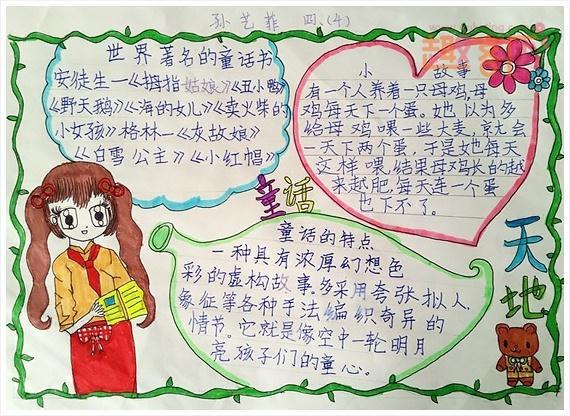 孙艺菲 四.(4)
世界著名的童话书
安徒生—《拇指姑娘》《丑小鸭》
《野天鹅》《海的女儿》《卖火柴的
小女孩》格林—《灰故娘》
《白雪公主》《小红帽》
小 故事
有一个人养着一只母鸡,母
鸡每天下一个蛋。她以为多
给母鸡喂一些大麦,就会
一天下两个蛋,于是她每天
这样喂,结果母鸡长的越
来越肥,每天连一个蛋
也下不了。
童话
天地
童话的特点
一种具有浓厚幻想色
彩的虚构故事,多采用夸张.拟人.
象征等各种手法编织奇异的
情节。它就是像空中一轮明月
亮孩子们的童心。